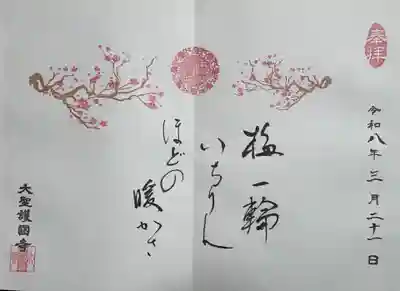 奉拝
令和八年三月二十一日
梅一輪
いちりん
ほどの
暖かさ
大聖護國寺